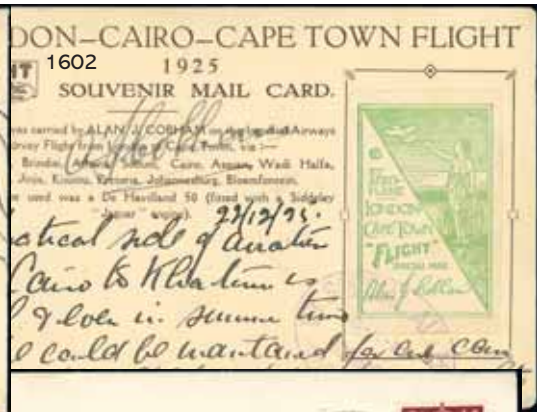 DON–CAIRO–CAPE TOWN FLIGHT
1602
1925
SOUVENIR MAIL CARD.
was carried by ALAN J. COBHAM on the Imperial Airways
Survey Flight from London to Cape Town, via :—
Brindisi, Athens, Cairo, Assuan, Wadi Halfa,
Jinja, Kisumu, Johannesburg, Bloemfontein.
used was a De Havilland 50 (fitted with a Siddeley
"Jaguar" engine).
22/12/25.
side of aviation
Cairo to Khartoum is
in summer time
could be maintained for
LONDON
CAPE TOWN
"FLIGHT"
SPECIAL MAIL
Alan J Cobham